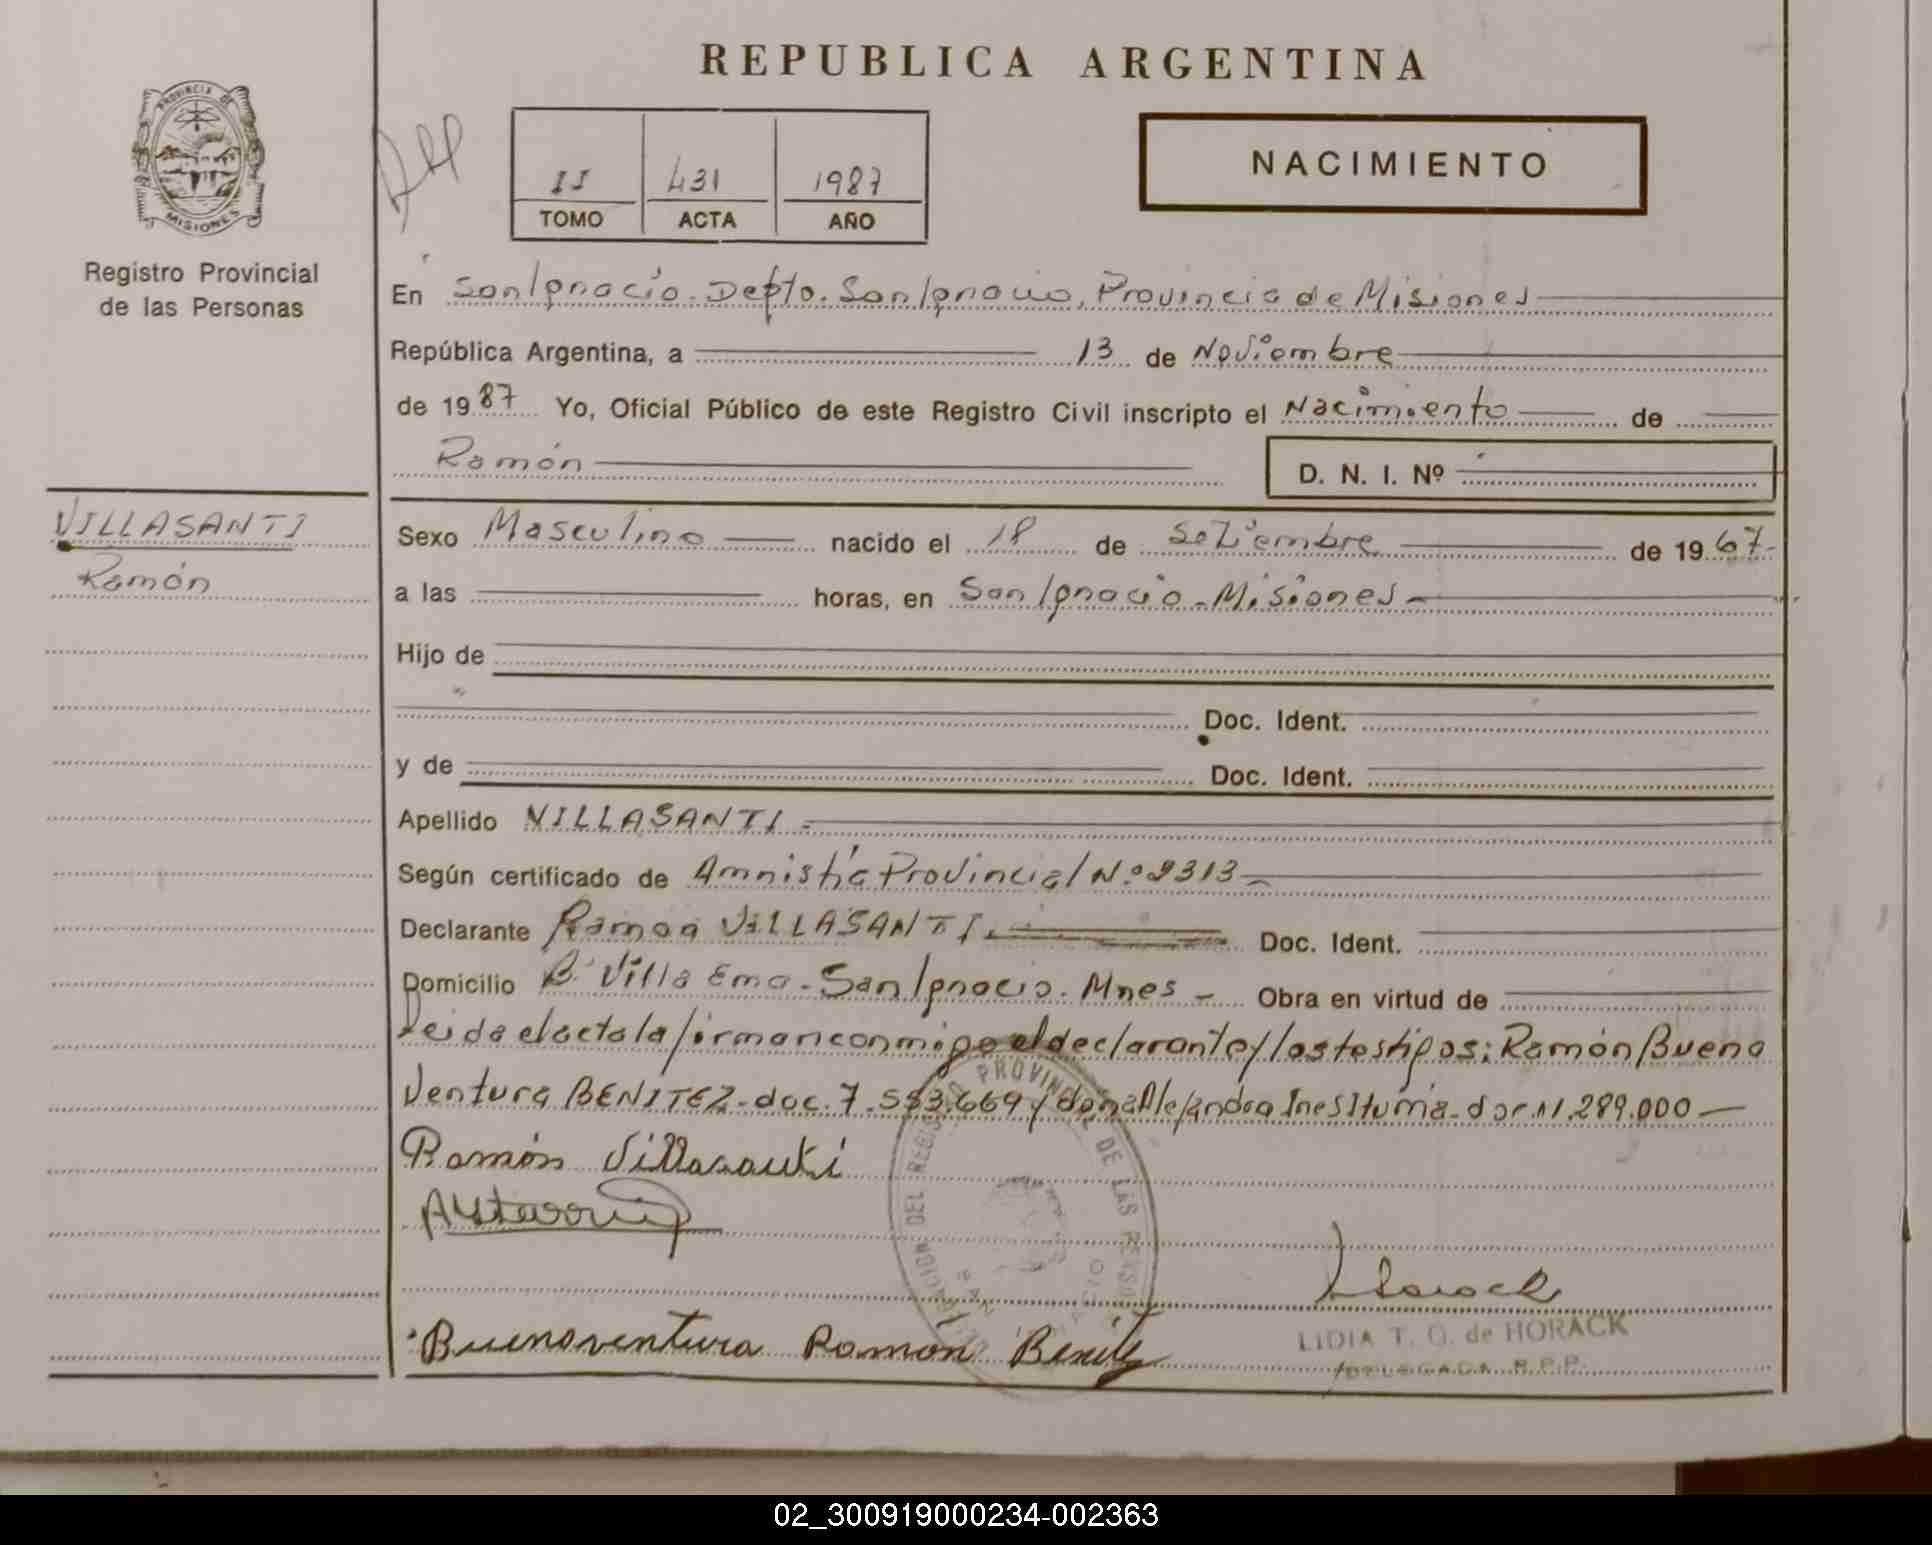 REPUBLICA ARGENTINA
PROVINCIA DE
MISIONES
Registro Provincial
de las Personas
II 431 1987
TOMO ACTA AÑO
NACIMIENTO
En San Ignacio. Depto. San Ignacio, Provincia de Misiones
República Argentina, a 13 de Noviembre
de 1987 Yo, Oficial Público de este Registro Civil inscripto el Nacimiento de
Ramón
D. N. I. Nº
VILLASANTI
Ramón
Sexo Masculino nacido el 18 de Setiembre de 1967-
a las horas, en San Ignacio - Misiones -
Hijo de
Doc. Ident.
y de Doc. Ident.
Apellido VILLASANTI -
Según certificado de Amnistía Provincial Nº 9313 -
Declarante Ramón VILLASANTI. Doc. Ident.
Domicilio B° Villa Ema - San Ignacio. Mnes - Obra en virtud de
Leida el acta la firman conmigo el declarante y los testigos: Ramón Buena
Ventura BENITEZ - doc. 7.553.669 y doña Alejandra Ines Ituma - doc. 11.289.000 -
Ramón Villasanti
Buenaventura Ramon Benitez
Horack
LIDIA T. O. de HORACK
DELEGADA R.P.P.
DELEGACION DEL REGISTRO PROVINCIAL DE LAS PERSONAS
SAN IGNACIO
02_300919000234-002363